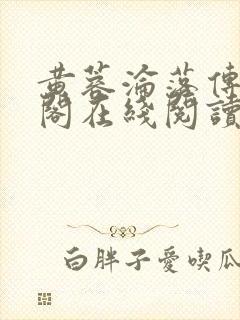 黃蓉淪落傳
閣在綫閱讀
白胖子愛喫瓜